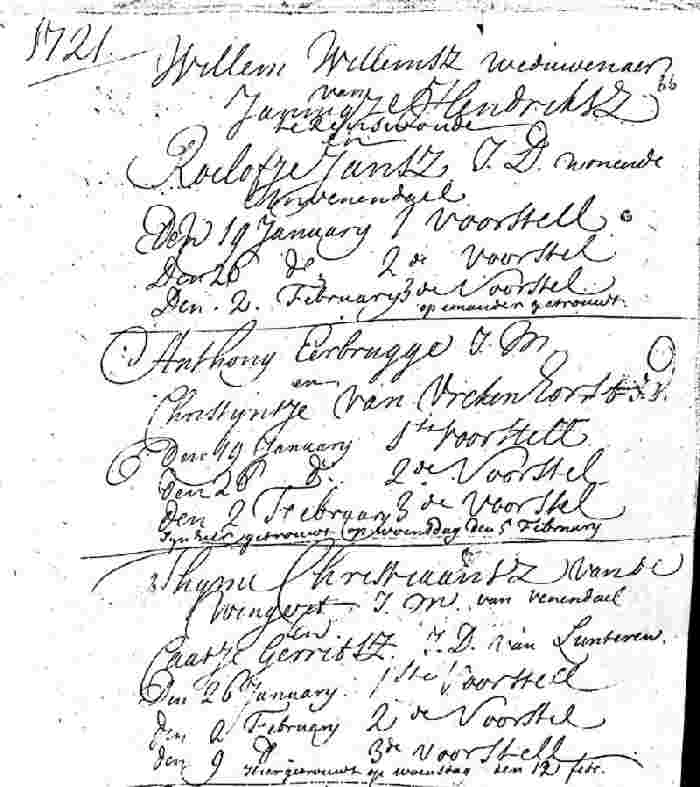 1721.
Willem Willemsz weduwenaer
van
Jannigje Hendriksz
te Renswoude
en
Roelofje Jansz J.D. wonende
Den 19 January 1 voorstell
Den 26 do 2 de voorstel
Den. 2. February 3 de Voorstel
op emander getrouwt.
Anthony Eerbrugge J. M
en
Christijntje van Vrekenhorst J.D.
Den 19 January 1ste voorstell
Den 26 d. 2 de Voorstel
den 2 February 3 de Voorstel
Sijn hier getrouwt op woensdag den 5 February
Thijmi Christiaansz van de
Wingert J. M. van venendael
en.
Caatje Gerritsz. J.D. van Lunteren.
Den 26 January. 1ste Voorstell
den 2 February 2 de Voorstel
den 9 D 3de voorstell
Hier getrouwt op woenstag den 12 febr.